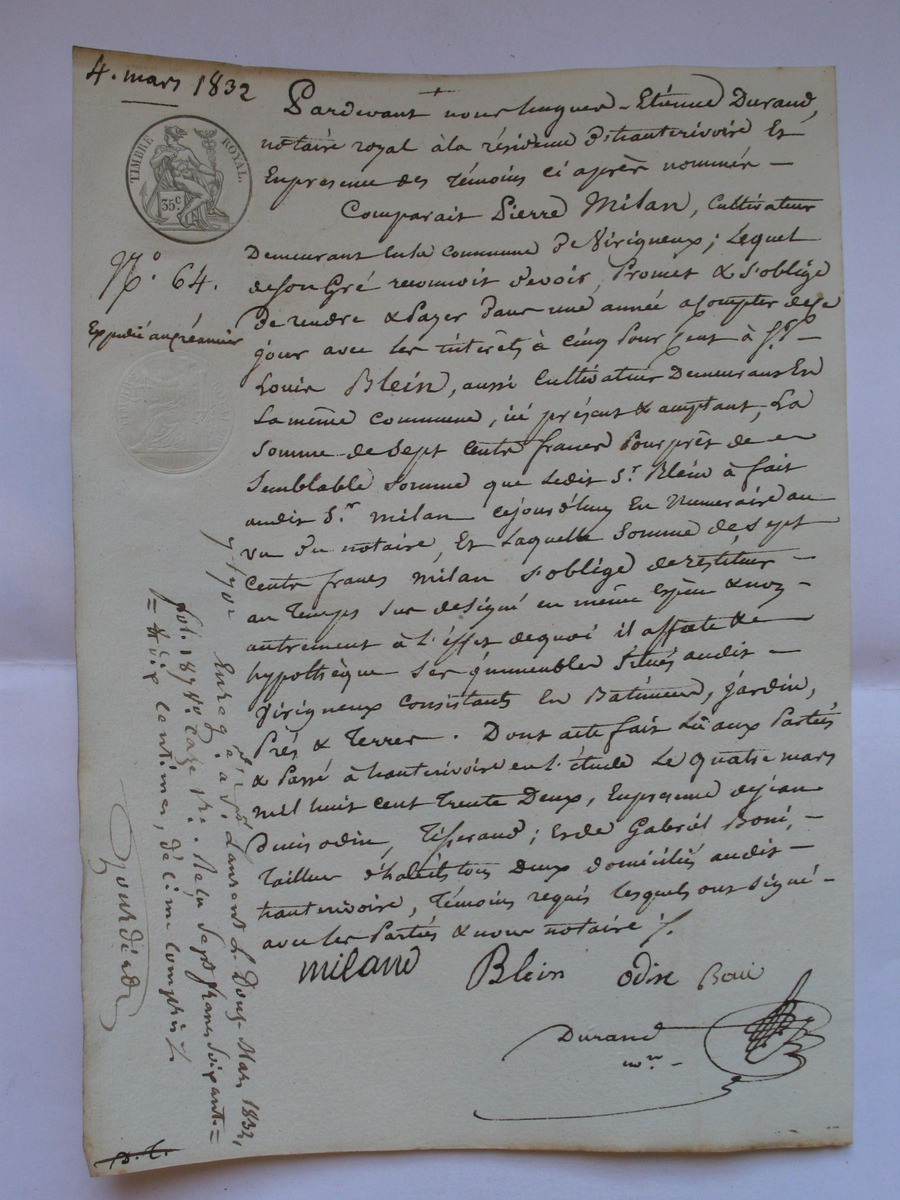 4. mars 1832
TIMBRE ROYAL.
35c
N.o 64.
Expédié au créancier
Pardevant nous hugues - Etienne Durand,
notaire royal à la résidence d'hauterivoire Et
En presence des témoins ci après nommés -
Comparait Pierre Milan, Cultivateur
Demeurant En la commune de Virigneux; Lequel
de son Gré reconnoit devoir, Promet & s'oblige
De rendre & Payer dans une année a Compter de ce
jour avec les intérêts à Cinq Pour Cent à
Louis Blein, aussi Cultivateur Demeurant En
La même Commune, ici présent & acceptant, La
Somme de Sept Cents francs Pour prêt de
Semblable somme que Ledit S.r Blein à fait
audit S.r milan cejourd'huy En Numeraire au
vu du notaire, Et Laquelle Somme de Sept
Cents francs Milan s'oblige de restituer -
au Temps sus designé en même Espèce & non
autrement à L'effet de quoi il affecte &
hypothèque Ses immeubles Situés audit -
Virigneux Consistants En Batiments, jardin,
Prés & Terres. Dont acte fait Lû aux Parties
& Passé à hauterivoire en L'étude Le quatre mars
mil huit cent Trente Deux, En presence de jean
Denis odin, Tisserand; Et de Gabriel Boni, -
Tailleur d'habits tous Deux domiciliés audit -
hauterivoire, Témoins requis lesquels ont signé -
avec les Parties & nous notaire /.
miland Blein odin Boni
Durand
n.re
Enreg. à St Laurent Le Douze Mars 1832,
fol. 187 V.o Case 1re. Reçu Sept francs Soixante=
= & dix Centimes, décime compris